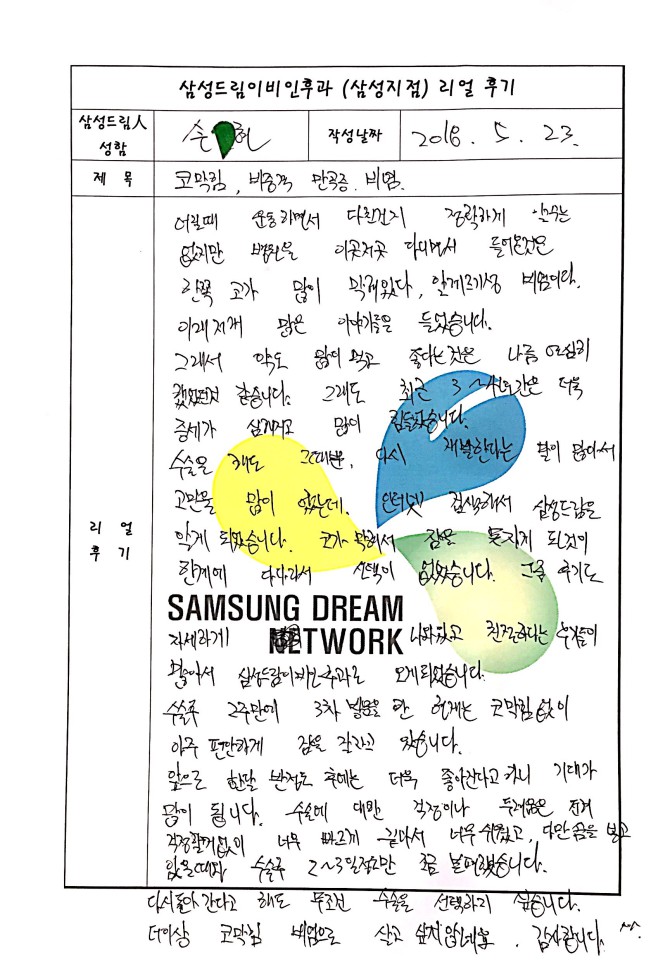 삼성드림이비인후과 (삼성지점) 리얼 후기
삼성드림人 성함
손 헌
작성날짜
2018. 5. 23.
제 목
코막힘, 비중격 만곡증. 비염.
리 얼
후 기
어릴때 운동하면서 다친건지 정확하게 알수는
없지만 병원을 이곳저곳 다니면서 들어온것은
왼쪽 코가 많이 막혀있다, 알레르기성 비염이다.
이래저래 많은 이야기를을 들었습니다.
그래서 약도 많이 먹고 좋다는것은 나름 열심히
했었던것 같습니다. 그래도 최근 3~4년간은 더욱
증세가 심해지고 많이 힘들었습니다.
수술을 해도 그때뿐, 다시 재발한다는 말이 많아서
고민을 많이 했는데. 인터넷 검색해서 삼성드림을
알게 되었습니다. 코가 막혀서 잠을 못자게 된것이
한계에 다다라서 선택이 없었습니다. 그중 후기도
SAMSUNG DREAM
NETWORK
자세하게 나와있고 친절하다는 후기들이
많아서 삼성드림이비인후과로 오게되었습니다.
수술후 2주만에 3차 방문을 한 현재는 코막힘 없이
아주 편안하게 잠을 잘자고 있습니다.
앞으로 한달 반정도 후에는 더욱 좋아진다고 하니 기대가
많이 됩니다. 수술에 대한 걱정이나 두려움은 전혀
걱정할꺼없이 너무 빠르게 끝나서 너무 쉬웠고, 다만 솜을 넣고
있을때와 수술후 2~3일정도만 조금 불편했습니다.
다시돌아 간다고 해도 무조건 수술을 선택하지 싶습니다.
더이상 코막힘 비염으로 살고 싶지않네요. 감사합니다. ^^.